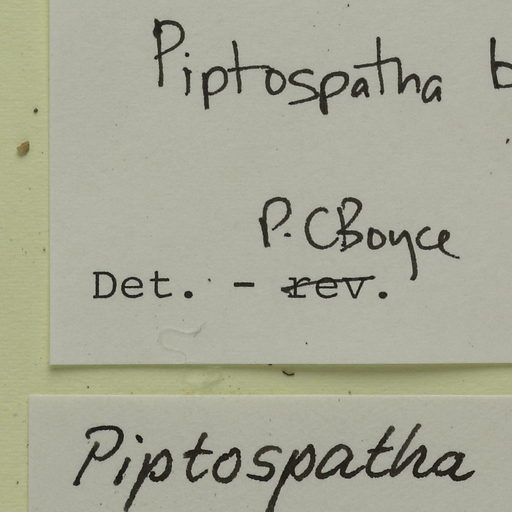 Piptospatha b
P. C Boyce
Det. - rev.
Piptospatha